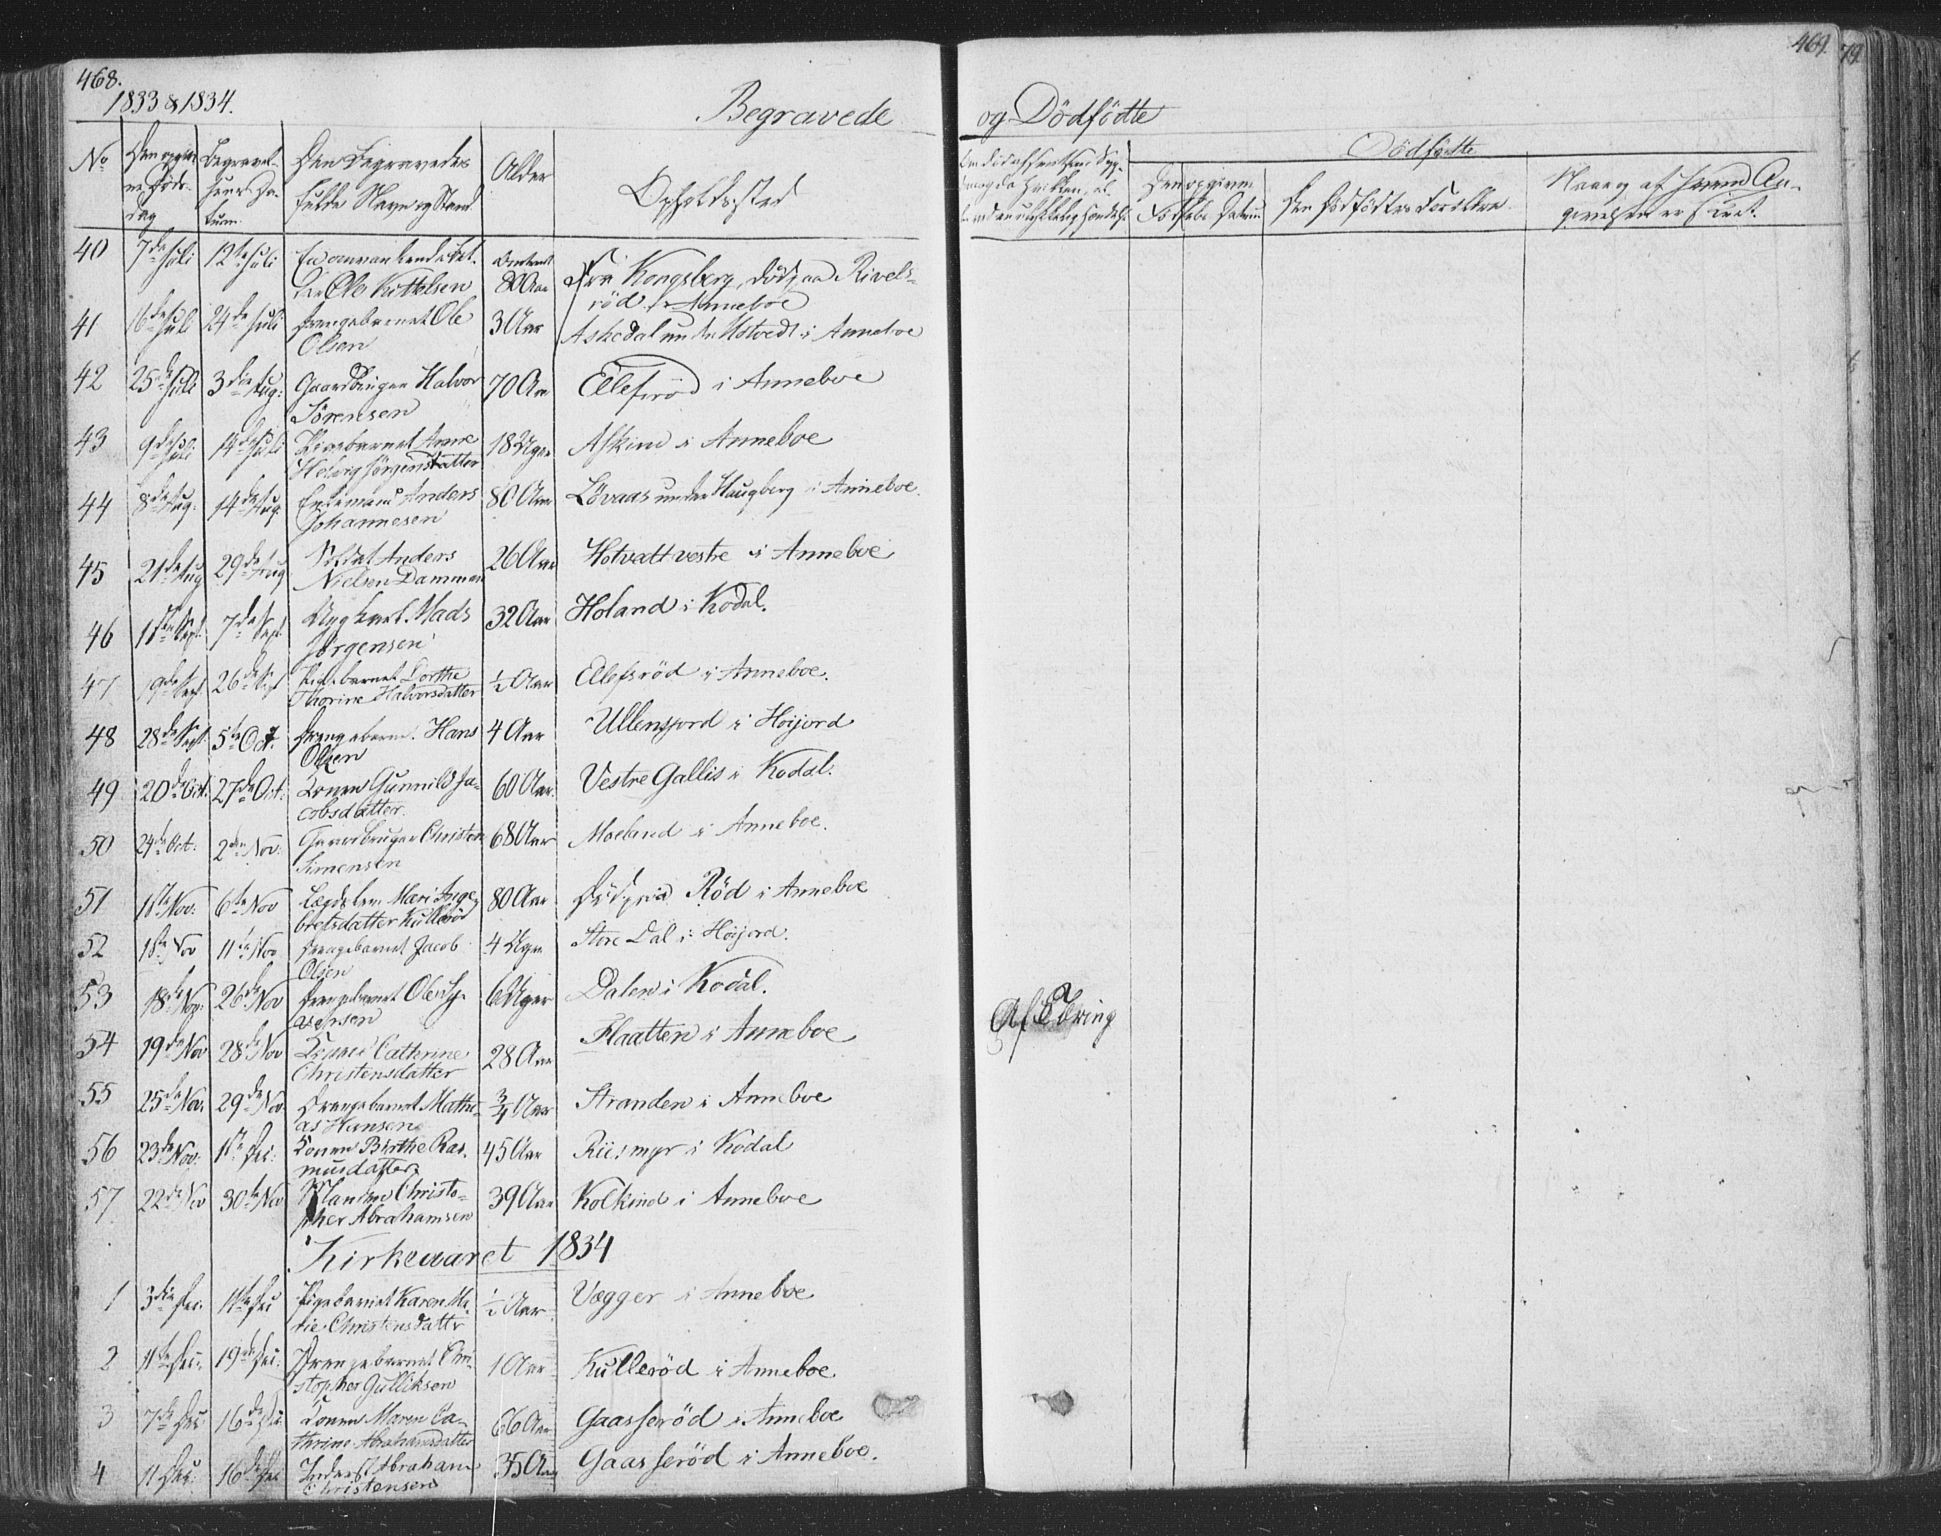 468.
1833 & 1834.
Begravede
og Dödfödte
469.
79
No
Den opgivne Döds-dag
Begravelsens Datum
Den Begravedes fulde Navn og Stand
Alder
Opholdssted
Dödfödte
Den opgivne Födsels Datum
Den Födfödtes Forældre
40 7de Juli 12te Juli
Ole Kittelsen 80 Aar Fra Kongsberg, död paa Rivels-
röd i Anneboe
41 16de Juli 24de Juli Drengebarnet Ole
Olsen 3 Aar Askedal under Hotvedt i Anneboe
42 25de Juli 3die Aug: Gaardbruger Halvor
Sörensen 70 Aar Ellefsröd i Anneboe
43 9de Juli 14de Juli Pigebarnet Anne
Helvig Jörgensdatter 18 Uger Askim i Anneboe
44 8de Aug: 14de Aug: Enkemand Anders
Johannesen 80 Aar Lövaas under Haugberg i Anneboe.
45 21de Aug 29de Aug Soldat Anders
Nielsen Dammen 26 Aar Hotvatt vestre i Anneboe
46 1ste Sept. 7de Sept. Ungkarl Mads
Jörgensen 32 Aar Holand i Kodal.
47 19de Sept. 26de Sept Pigebarnet Dorthe
Thorine Halvorsdatter ½ Aar Ellefsröd i Anneboe.
48 28de Sept. 5te Oct. Drengebarn. Hans
Olsen 4 Aar Ullensjord i Höijord
49 20de Oct. 27de Oct. Konen Gunnild Ja-
cobsdatter 60 Aar. Vestre Gallis i Kodal.
50 24de Oct. 2den Nov. Gaardbruger Christen
Simensen 68 Aar Moeland i Anneboe.
51 1ste Nov. 6te Nov Lægdslem Mari Inge-
bretsdatter Kulleröd 80 Aar Död paa Röd i Anneboe
52 1ste Nov 11te Nov Drengebarnet Jacob
Olsen 4 Uger Store Dal i Höijord.
53 18de Nov. 26de Nov Drengebarnet Ole
6 Uger Dalen i Kodal.
54 19de Nov 28de Nov Konen Catherine
Christensdatter 28 Aar Flaatten i Anneboe
Af Tæring
55 25de Nov. 29de Nov. Drengebarnet Mathi-
as Hansen ¾ Aar Stranden i Anneboe
56 23de Nov. 1ste Dec. Konen Birthe Ras-
musdatter 45 Aar Riismyr i Kodal
57 22de Nov 30te Nov Christo-
pher Abrahamsen 39 Aar Kolkind i Anneboe
Kirkeaaret 1834
1 3die Dec. 11te Dec Pigebarnet Karen Ma-
rie Christensdatter ½ Aar Vægger i Anneboe
2 11te Dec. 19de Dec. Drengebarnet Chri-
stopher Gulliksen 1 Aar Kulleröd i Anneboe
3 7de Dec. 16de Dec. Konen Maren Ca-
thrine Abrahamsdatter 66 Aar Gaasseröd i Anneboe
4 11 Dec. 16de Dec Inderst Abraham
Christensen 35 Aar Gaasseröd i Anneboe.